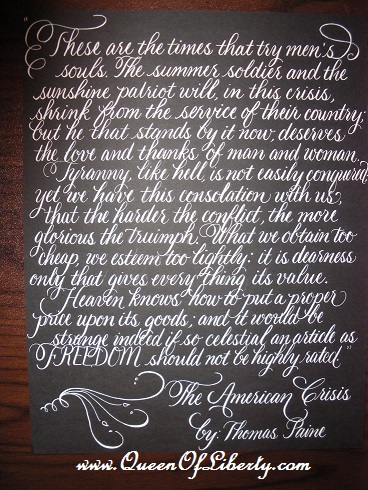 "These are the times that try men's
souls. The summer soldier and the
sunshine patriot will, in this crisis,
shrink from the service of their country;
but he that stands by it now, deserves
the love and thanks of man and woman.
Tyranny, like hell, is not easily conquered;
yet we have this consolation with us,
that the harder the conflict, the more
glorious the truimph. What we obtain too
cheap, we esteem too lightly: it is dearness
only that gives every thing its value.
Heaven knows how to put a proper
price upon its goods; and it would be
strange indeed if so celestial an article as
FREEDOM should not be highly rated."
The American Crisis
by: Thomas Paine
www.QueenOfLiberty.com